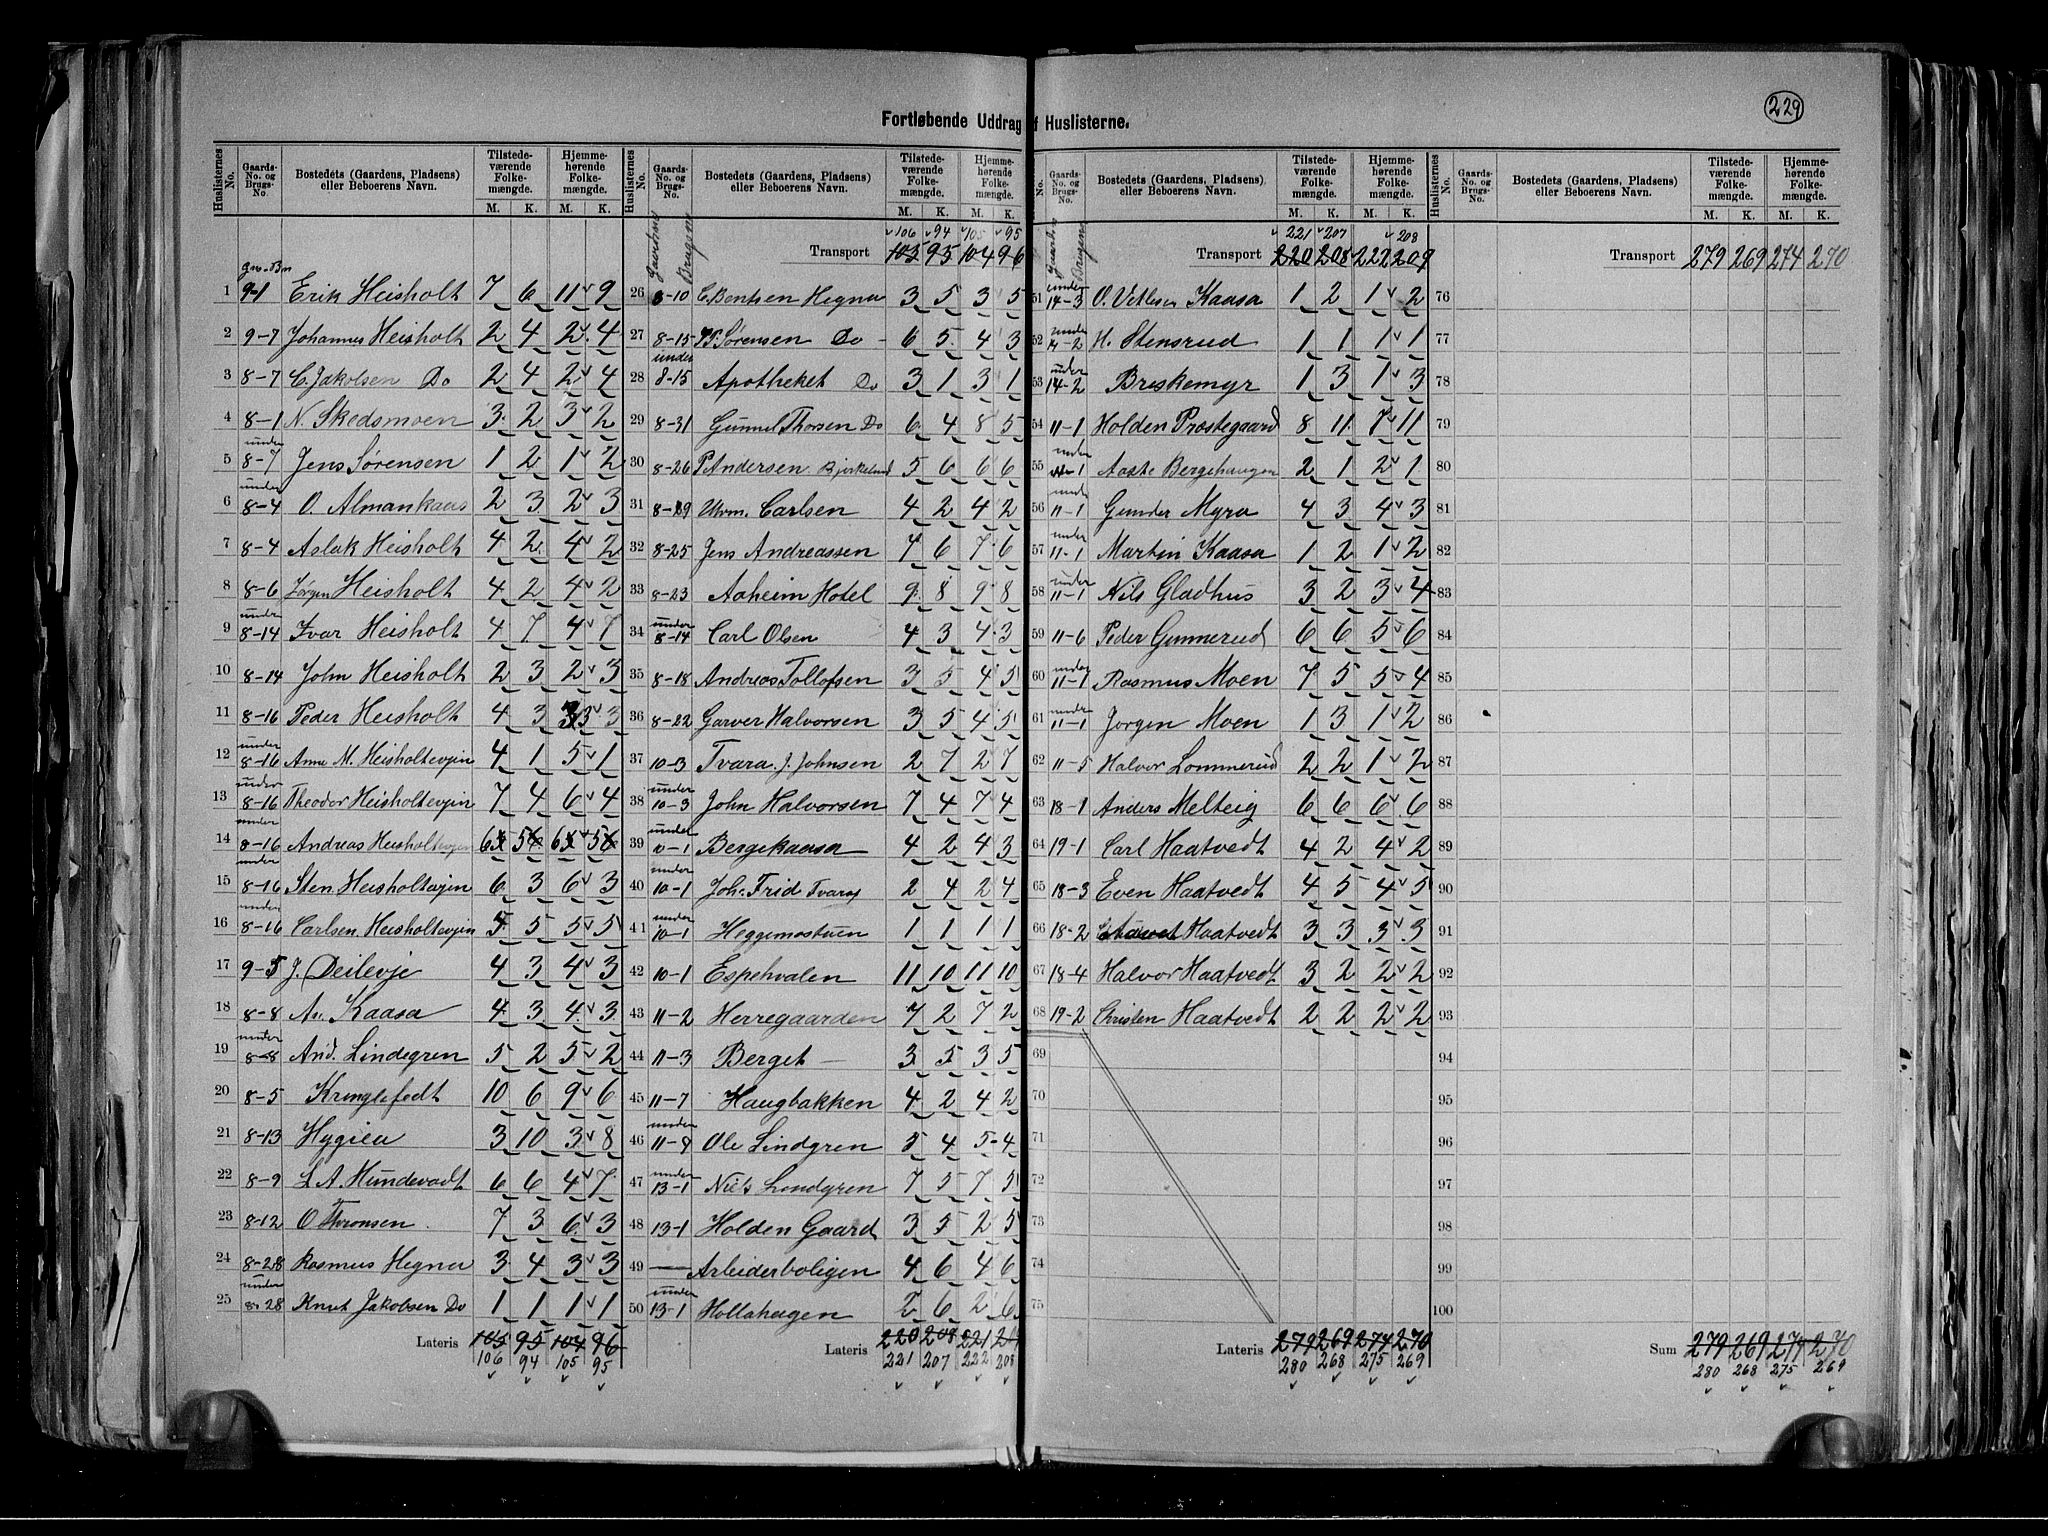 229
Fortløbende Uddrag af Huslisterne.
Huslisternes No. Gaards-No. og Brugs-No. Bostedets (Gaardens, Pladsens) eller Beboerens Navn. Tilstedeværende Folkemængde. M. K. Hjemmehørende Folkemængde. M. K.
1 9-1 Erik Heisholt 7 6 11 9
2 9-7 Johannes Heisholt 2 4 2 4
3 8-7 C. Jakobsen Do 2 4 2 4
4 8-1 N. Skedsmoen 3 2 3 2
5 under 8-7 Jens Sørensen 1 2 1 2
6 under 8-4 O. Almankaas 2 3 2 3
7 8-4 Aslak Heisholt 4 2 4 2
8 8-6 Jørgen Heisholt 4 2 4 2
9 under 8-14 Ivar Heisholt 4 7 4 7
10 8-14 John Heisholt 2 3 2 3
11 8-16 Peder Heisholt 4 3 3 3
12 under 8-16 Anne M. Heisholtevjen 4 1 5 1
13 under 8-16 Theodor Heisholtevjen 7 4 6 4
14 under 8-16 Andreas Heisholtevjen 6 5 6 5
15 under 8-16 Sten Heisholtevjen 6 3 6 3
16 under 8-16 Carlsen Heisholtevjen 5 5 5 5
17 9-5 J. Deilevje 4 3 4 3
18 8-8 An. Kaasa 4 3 4 3
19 under 8-8 And. Lindegren 5 2 5 2
20 8-5 Kringlefodt 10 6 9 6
21 8-13 Hygiea 3 10 3 8
22 8-9 L. A. Hundevadt 6 6 4 7
23 8-12 O Thronsen 7 3 6 3
24 8-28 Rasmus Hegna 3 4 3 3
25 under 8-28 Knut Jakobsen Do 1 1 1 1
Lateris 105 95 104 96
106 94 105 95
106 94 105 95
Transport 105 95 104 96
26 8-10 C. Bentsen Hegna 3 5 3 5
27 8-15 Sørensen Do 6 5 4 3
28 under 8-15 Apotheket Do 3 1 3 1
29 8-31 Gunnel Thorsen Do 6 4 8 5
30 8-26 P. Andersen Bjerkelund 5 6 6 6
31 8-19 Carlsen 4 2 4 2
32 8-25 Jens Andreassen 7 6 7 6
33 8-23 Aaheim Hotel 9 8 9 8
34 under 8-14 Carl Olsen 4 3 4 3
35 8-18 Andreas Tollofsen 3 5 4 5
36 8-22 Garver Halvorsen 3 5 4 5
37 10-3 Tvara. J. Johnsen 2 7 2 7
38 under 10-3 John Halvorsen 7 4 7 4
39 under 10-1 Bergekaasa 4 2 4 3
40 under 10-1 Joh. Frid Tvara 2 4 2 4
41 under 10-1 Heggemostuen 1 1 1 1
42 10-1 Espehvalen 11 10 11 10
43 11-2 Herregaarden 7 2 7 2
44 11-3 Berget 3 5 3 5
45 11-7 Haugbakken 4 2 4 2
46 under 11-8 Ole Lindgren 5 4 5 4
47 under 13-1 Niels Lindgren 7 5 7 5
48 13-1 Holden Gaard 3 5 2 5
49 Arbeiderboligen 4 6 4 6
50 under 13-1 Hollahagen 2 6 2 6
Lateris 220 208 221
221 207 222 208
221 207 208
Transport 220 208 222 209
51 under 14-3 O. Vetlesen Kaasa 1 2 1 2
52 under 14-2 H. Stensrud 1 1 1 1
53 under 14-2 Breskemyr 1 3 1 3
54 11-1 Holden Prestegaard 8 11 7 11
55 under 11-1 Aaste Bergehaugen 2 1 2 1
56 under 11-1 Gunder Myra 4 3 4 3
57 under 11-1 Martin Kaasa 1 2 1 2
58 under 11-1 Nils Gladhus 3 2 3 4
59 11-6 Peder Gunnerud 6 6 5 6
60 under 11-1 Rasmus Moen 7 5 5 4
61 under 11-1 Jørgen Moen 1 3 1 2
62 11-5 Halvor Lommerud 2 2 1 2
63 18-1 Anders Melteig 6 6 6 6
64 19-1 Carl Haatvedt 4 2 4 2
65 18-3 Even Haatvedt 4 5 4 5
66 18-2 Haatvedt 3 3 3 3
67 18-4 Halvor Haatvedt 3 2 2 2
68 19-2 Christen Haatvedt 2 2 2 2
69
70
71
72
73
74
75
Lateris 279 269 274 270
280 268 275 269
Transport 279 269 274 270
76
77
78
79
80
81
82
83
84
85
86
87
88
89
90
91
92
93
94
95
96
97
98
99
100
Sum 279 269 274 270
280 268 275 269